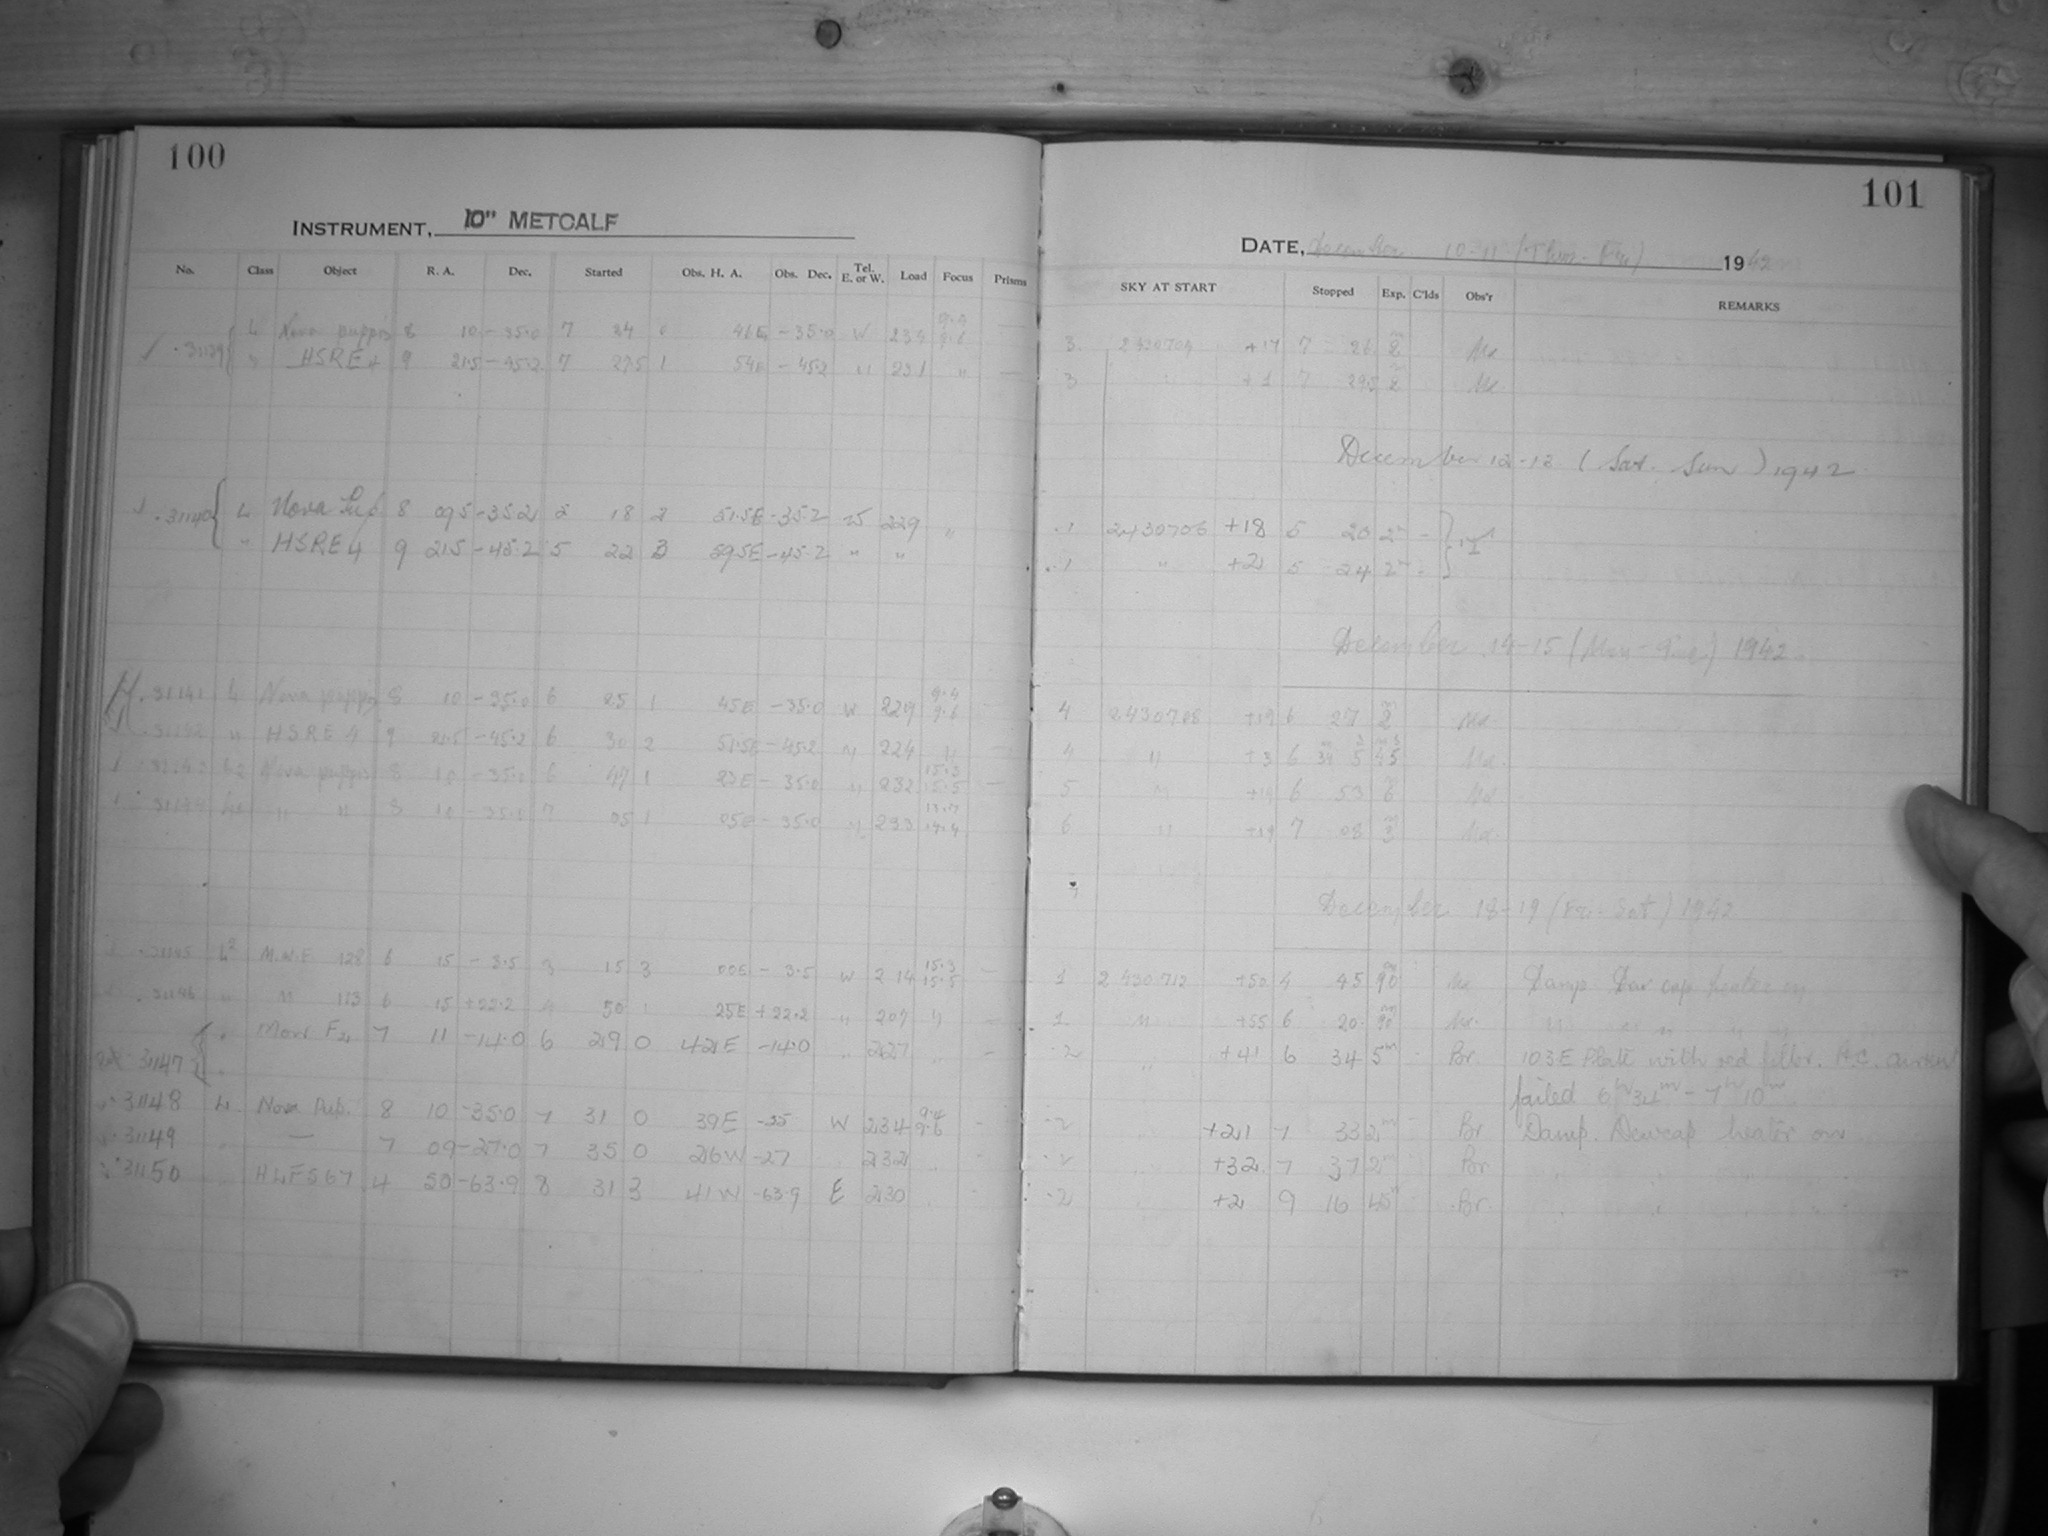 100
INSTRUMENT, 10" METCALF
No. Class Object R. A. Dec. Started Obs. H. A. Obs. Dec. Tel. E. or W. Load Focus Prisms
31139 L Nova puppis 8 10 -35.0 7 24 46E -35.0 W 234 9.4 9.6
" HSRE4 9 21.5 -45.2 7 27.5 1 54E -45.2 " 231 "
31140 L Nova Pup 8 09.5 -35.2 5 18 2 51.5E -35.2 W 229 "
" HSRE4 9 21.5 -45.2 5 22 3 59.5E -45.2 " "
31141 L Nova puppis 8 10 -35.0 6 25 1 45E -35.0 W 229 9.4 9.6
31142 " HSRE4 9 21.5 -45.2 6 30 2 51.5E -45.2 " 224 "
31143 L2 Nova puppis 8 10 -35.0 6 47 1 23E -35.0 " 232 15.3 15.5
31144 " " 8 10 -35.0 7 05 1 05E -35.0 " 233 14.4
31145 L2 M.W.F 128 6 15 -3.5 3 15 3 00E -3.5 W 214 15.3 15.5
31146 " " 113 6 15 +22.2 4 50 1 25E +22.2 " 207 "
31147 F2 7 11 -14.0 6 29 0 42E -14.0 " 227
31148 L Nova Pup. 8 10 -35.0 7 31 0 39E -35 W 234 9.4 9.6
31149 — 7 09 -27.0 7 35 0 26W -27 232
31150 HLFS67 4 50 -63.9 8 31 3 41W -63.9 E 230
101
DATE, December 10-11 (Thur-Fri) 1942
SKY AT START Stopped Exp. C'lds Obs'r REMARKS
3 2430704 +17 7 26 2m Ma
3 +1 7 29.5 2m Ma
December 12-13 (Sat. Sun) 1942
1 2430706 +18 5 20 2m -
1 " +2 5 24 2m -
December 14-15 (Mon-Tue) 1942
4 2430708 +19 6 27 2m Ma
4 " +3 6 34m 5s 4m 5s Ma
5 " +19 6 53 6m Ma
6 " +19 7 08 3m Ma
December 18-19 (Fri-Sat) 1942
1 2430712 +50 4 45 90m Ma Damp Dew cap heater on
1 " +55 6 20 90m Ma " " " "
2 " +41 6 34 5m Br. 103E Plate with red filter. A.C. current
failed 6h 34m - 7h 10m
2 +21 7 33 2m Br Damp. Dewcap heater on
2 +32 7 37 2m Br
2 +2 9 16 45m Br.